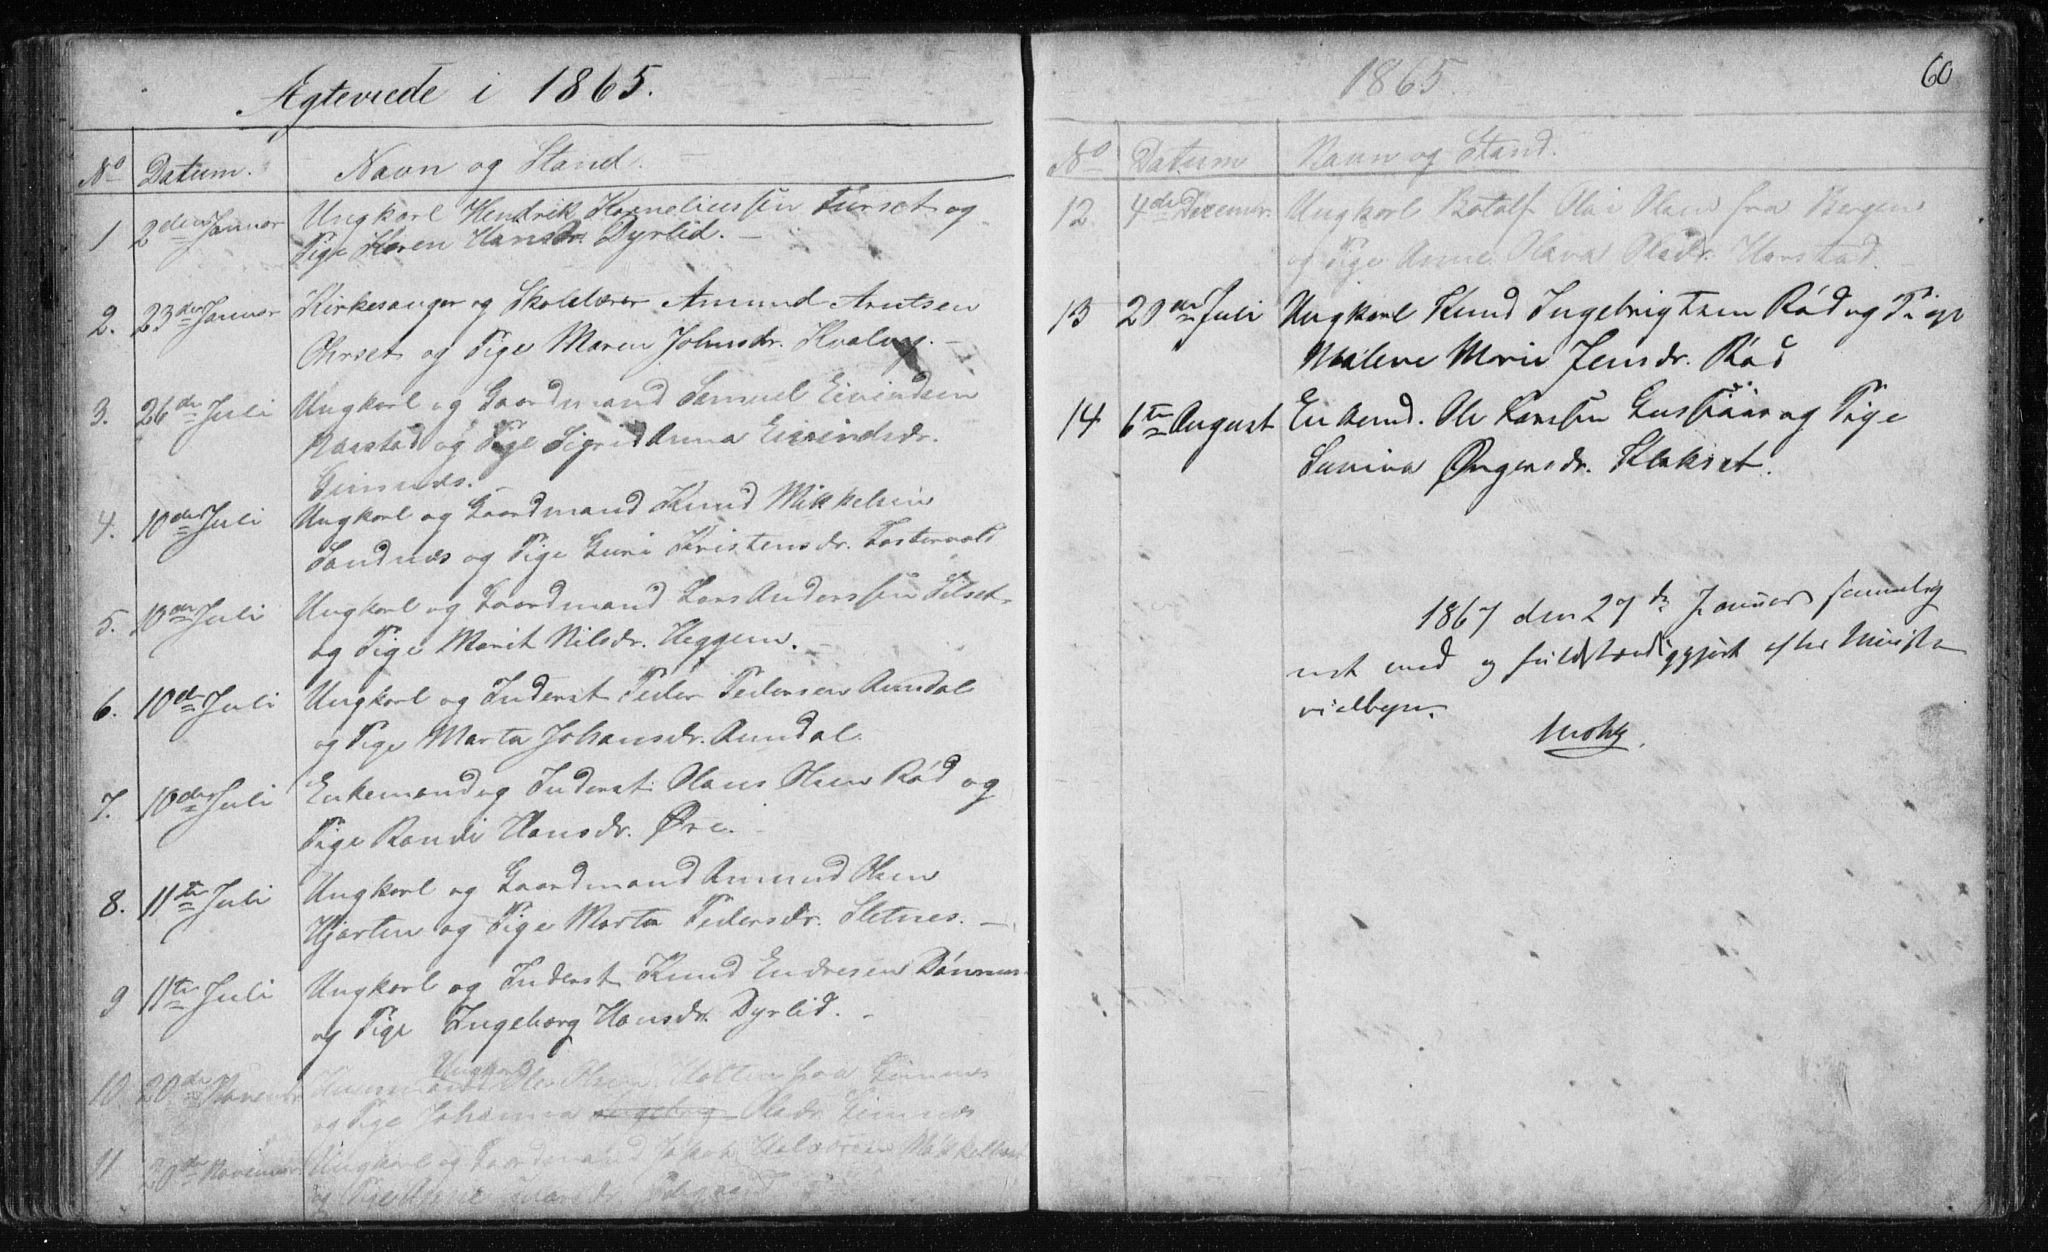 Ægteviede i 1865.
No Datum. Navn og Stand.
1 2den Januar Ungkarl Hendrik Korneliussen Furset og
Pige Karen Hansdr. Dyrlid.
2. 23de Januar Kirkesanger og Skolelærer Amund Arntsen
Ohrset og Pige Maren Johnsdr. Kvalvag.
3. 26de Juli Ungkarl og Gaardmand Samuel Eivindsen
Naastad og Pige Sigrid Anna Eivindsdr.
Gimnæs.
4. 10de Juli Ungkarl og Gaardmand Knud Mikkelsen
Sandnæs og Pige Guri Kristensdr. Fostervold
5. 10de Juli Ungkarl og Gaardmand Lars Anderssen Silset
og Pige Marit Nilsdr. Heggem.
6. 10de Juli Ungkarl og Inderst Peder Pedersen Aundal
og Pige Marta Johansdr. Aundal.
7. 10de Juli Enkemand og Inderst Hans Olsen Rød og
Pige Randi Hansdr. Øre.
8. 11te Juli Ungkarl og Gaardmand Amund Olsen
Hjorten og Pige Marta Pedersdr. Sletnes.
9 11te Juli Ungkarl og Inderst Knud Endresen Dønnem
og Pige Ingeborg Hansdr. Dyrlid.
Ungkarl
10. 20de November Ole Olsen Holten fra Gimnes
og Pige Johanna Ingeborg Olsdr. Gimnæs
11 20de November Ungkarl og Gaardmand Jakob Halvorsen Mikkelbost
og Pige Anne
1865.
60
No Datum Navn og Stand.
12 4de December Ungkarl Botolf Olai Olsen fra Bergen
og Pige Anne Olava Olsdr. Harstad.
13 20de Juli Ungkarl Knud Ingebrigtsen Rød og Pige
Malene Marie Jensdr. Rød
14 6te August Enkemd. Ole Larssen Gusiaas og Pige
Savina Ørgensdr. Stokset.
1867 den 27de Januar
med og fuldstændiggjort efter Minist